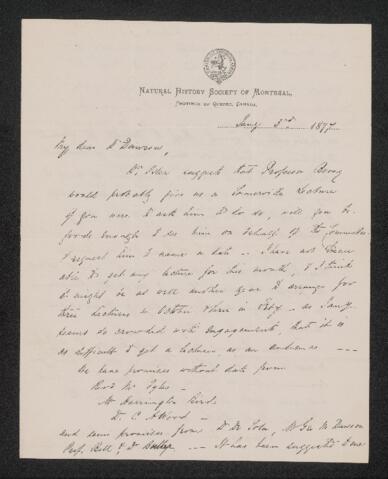 NATURAL HISTORY SOCIETY OF MONTREAL,
PROVINCE OF QUEBEC, CANADA.
Jany 3rd 1877
My dear Dr Dawson,
Dr. Osler suggests that Professor Bovey
would probably give us a Somerville Lecture
if you were to ask him to do so, will you be
good enough to see him on behalf of the Committee
& request him to name a date - I have not been
able to get any lecture for this month, & I think
it might be as well another year to arrange for
three lectures in October & three in Feby - as Jany
seems so crowded with engagements, that it is
as difficult to get a lecturer as an audience ---
We have promises without date from
Revd Mr
Mr Harrington
Dr.
and some promises from Dr De Sola, Mr Geo M Dawson
Prof. Bell & Dr --- It has been suggested to me